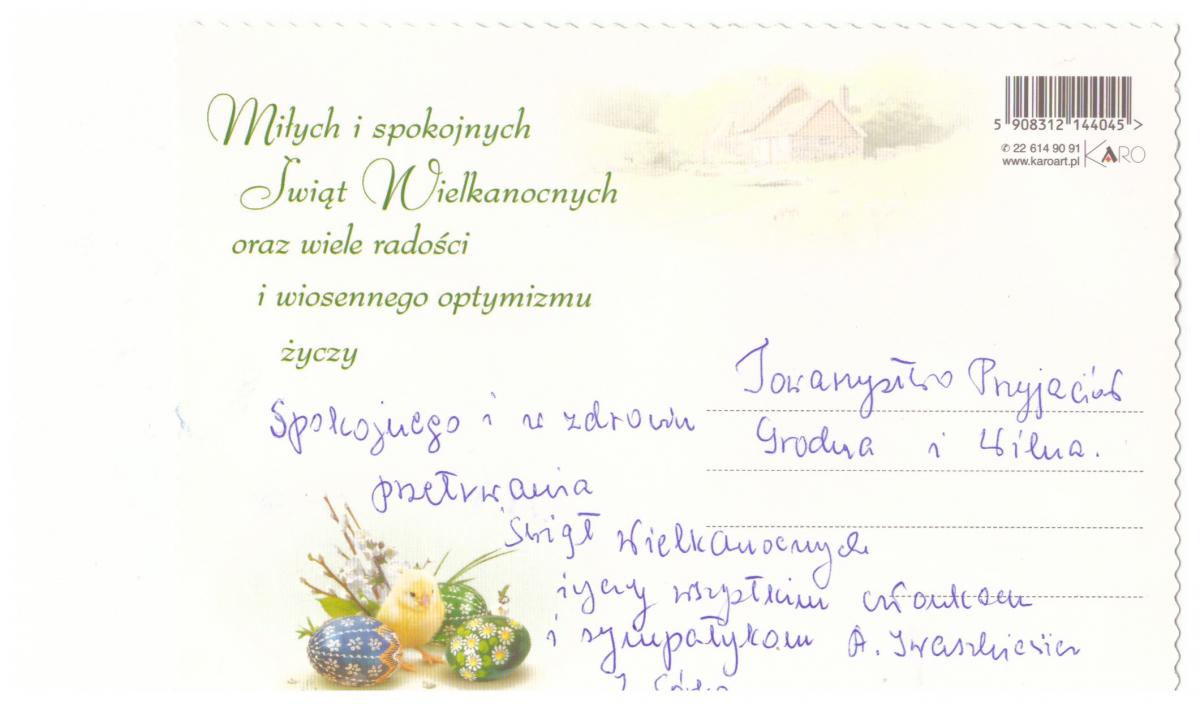 Miłych i spokojnych
Świąt Wielkanocnych
oraz wiele radości
i wiosennego optymizmu
życzy
5 908312 144045 >
✆ 22 614 90 91
www.karoart.pl
KARO
Towarzystwo Przyjaciół
Grodna i Wilna.
Spokojnego i w zdrowiu
przetrwania
Świąt Wielkanocnych
życzy wszystkim członkom
i sympatykom A. Iwaszkiewicz